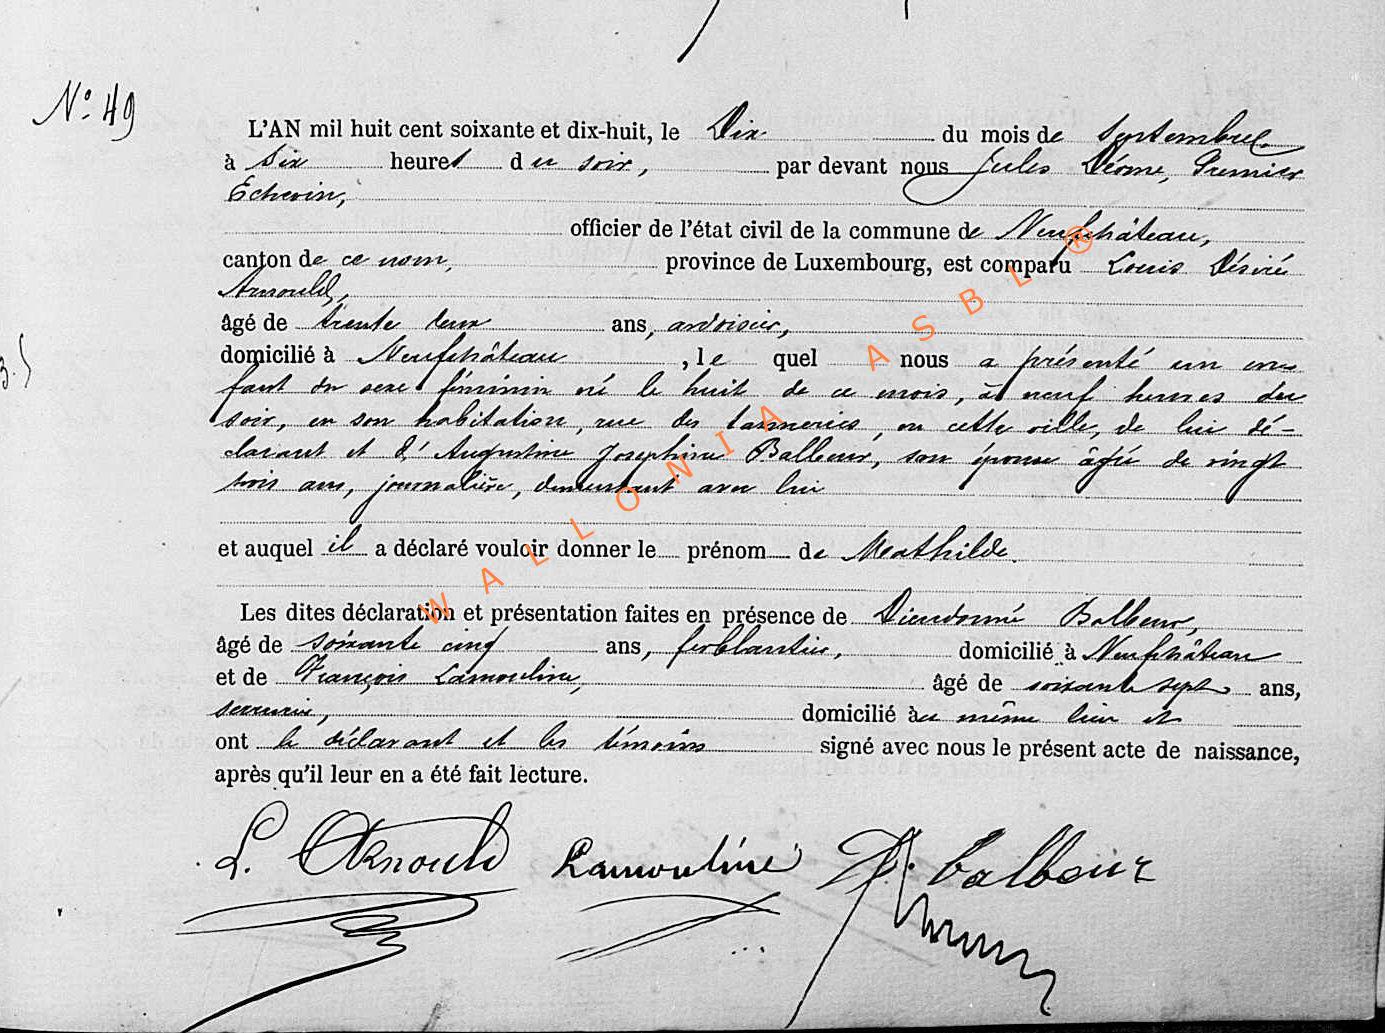 N° 49
L'AN mil huit cent soixante et dix-huit, le Dix du mois de Septembre
à Six heures du soir, par devant nous Jules Déome, Premier
Echevin,
officier de l'état civil de la commune de Neufchâteau,
canton de ce nom, province de Luxembourg, est comparu Louis Désiré
Arnould,
âgé de trente deux ans, ardoisier,
domicilié à Neufchâteau, le quel nous a présenté un en-
fant du sexe féminin né le huit de ce mois, à neuf heures du
soir, en son habitation, rue des tanneries, en cette ville, de lui dé-
clarant et d'Augustine Joséphine Balbeur, son épouse âgée de vingt
trois ans, journalière, demeurant avec lui
et auquel il a déclaré vouloir donner le prénom de Mathilde.
Les dites déclaration et présentation faites en présence de Dieudonné Balbeur,
âgé de soixante cinq ans, ferblantier, domicilié à Neufchâteau
et de François Lamouline, âgé de soixante sept ans,
serrurier, domicilié au même lieu et
ont le déclarant et les témoins signé avec nous le présent acte de naissance,
après qu'il leur en a été fait lecture.
L. Arnould Lamouline D. balbeur
WALLONIA ASBL ®